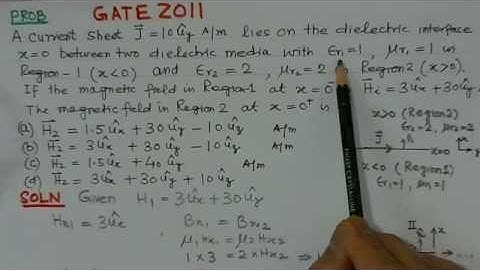 PROB GATE 2011
A current sheet J⃗ = 10 û_y A/m lies on the dielectric interface
x=0 between two dielectric media with εr1=1, μr1=1 in
Region-1 (x<0) and εr2=2, μr2=2 Region 2 (x>0).
If the magnetic field in Region-1 at x=0⁻ H₂ = 3û_x+30û
The magnetic field in Region 2 at x=0⁺ is
(a) H⃗₂ = 1.5û_x + 30û_y - 10û_y A/m
(b) H⃗₂ = 3û_x + 30û_y - 10û_y A/m
(c) H⃗₂ = 1.5û_x + 40û_y A/m
(d) H⃗₂ = 3û_x + 30û_y + 10û_y
x>0 (Region 2)
εr2=2, μr2=2
x<0 (Region 1)
εr1=1, μr1=1
SOLN Given H₁ = 3û_x + 30û_y
Hn1 = 3û_x , Bn1 = Bn2
μ₁Hx1 = μ₂Hx2
1 × 3 = 2 × Hx2 ⇒
x